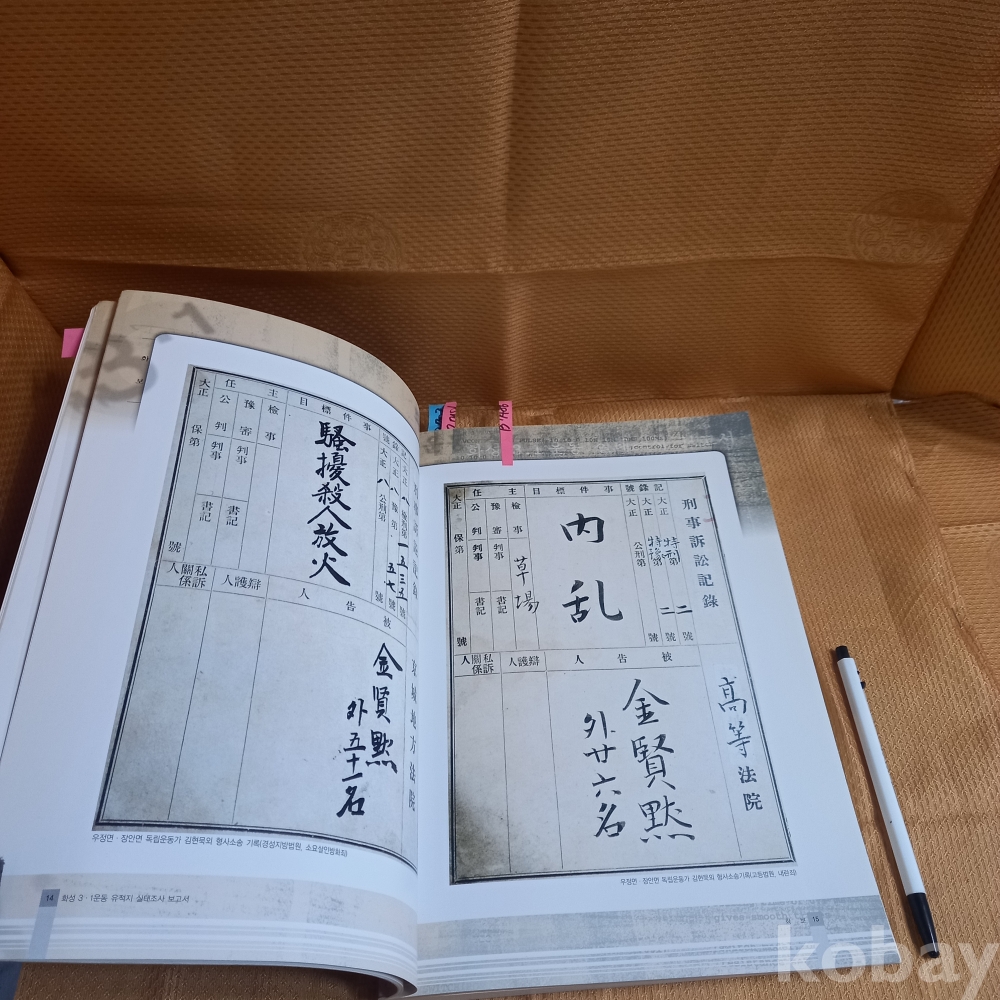 大正
保第
號
任
主
公判
判事
書記
豫審
判事
書記
檢事
事件標目
騷擾殺人放火
大正八
一五三五號
大正八公刑第五七號
私訴關係人
辯護人
被告人
金賢黙
外五十一名
京城地方法院
우정면·장안면 독립운동가 김현묵외 형사소송 기록(경성지방법원, 소요살인방화죄)
14 화성 3·1운동 유적지 실태조사 보고서
刑事訴訟記錄
高等法院
記錄號
大正 特刑第二號
大正 特豫第二號
大正 公刑第 號
事件標目
內乱
主任
檢事
草場
豫審
判事
書記
公判
判事
書記
大正
保第
號
被告人
金賢黙
外廿六名
辯護人
私訴關係人
우정면·장안면 독립운동가 김현묵외 형사소송기록(고등법원, 내란죄)
15
kobay